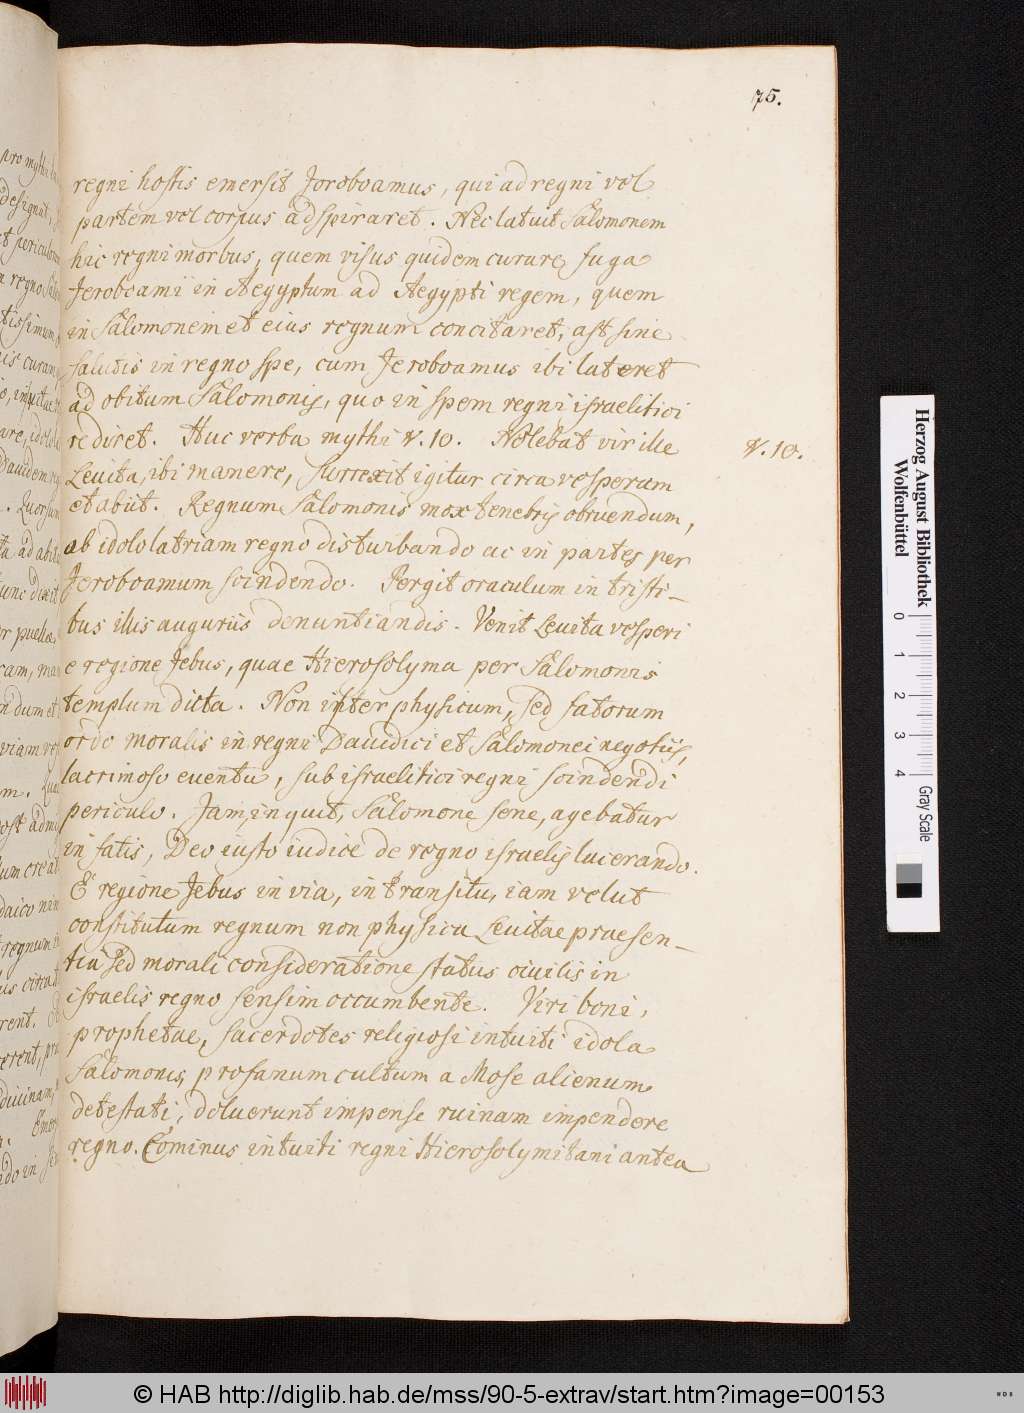 75.
regni hostis emersit Joroboamus, qui ad regni vel
partem vel corpus adspiraret. Nec latuit Salomonem
hic regni morbus, quem visus quidem curare fuga
Jeroboami in Aegyptum ad Aegypti regem, quem
in Salomonem et eius regnum concitaret, ast sine
salutis in regno spe, cum Jeroboamus ibi lateret
ad obitum Salomonis, quo in spem regni israelitici
rediret. Huc verba mythi v. 10. Nolebat vir ille
v. 10.
Levita, ibi manere, surrexit igitur circa vesperam
et abiit. Regnum Salomonis mox tenebris obruendum,
ab idololatriam regno disturbando ac in partes per
Jeroboamum scindendo. Pergit oraculum in tristi-
bus illis auguriis denuntiandis. Venit Levita vesperi
e regione Jebus, quae Hierosolyma per Salomonis
templum dicta. Non inter physicum, sed fatorum
ordo moralis in regni Dauidici et Salomonei negotiis,
lacrimoso euentu, sub israelitici regni scindendi
periculo. Jam, inquit, Salomone sene, agebatur
in fatis, Deo iusto iudice de regno israelis lacerando.
E regione Jebus in via, in transitu, iam velut
constitutum regnum non physica Leuitae praesen-
tia sed morali consideratione status ciuilis in
israelis regno sensim occumbente. Viri boni,
prophetae, sacerdotes religiosi intuiti idola
Salomonis, profanum cultum a Mose alienum
detestati, doluerunt impense ruinam impendere
regno. Cominus intuiti regni Hierosolymitani antea
Herzog August Bibliothek
Wolfenbüttel
0 1 2 3 4
Gray Scale
© HAB http://diglib.hab.de/mss/90-5-extrav/start.htm?image=00153